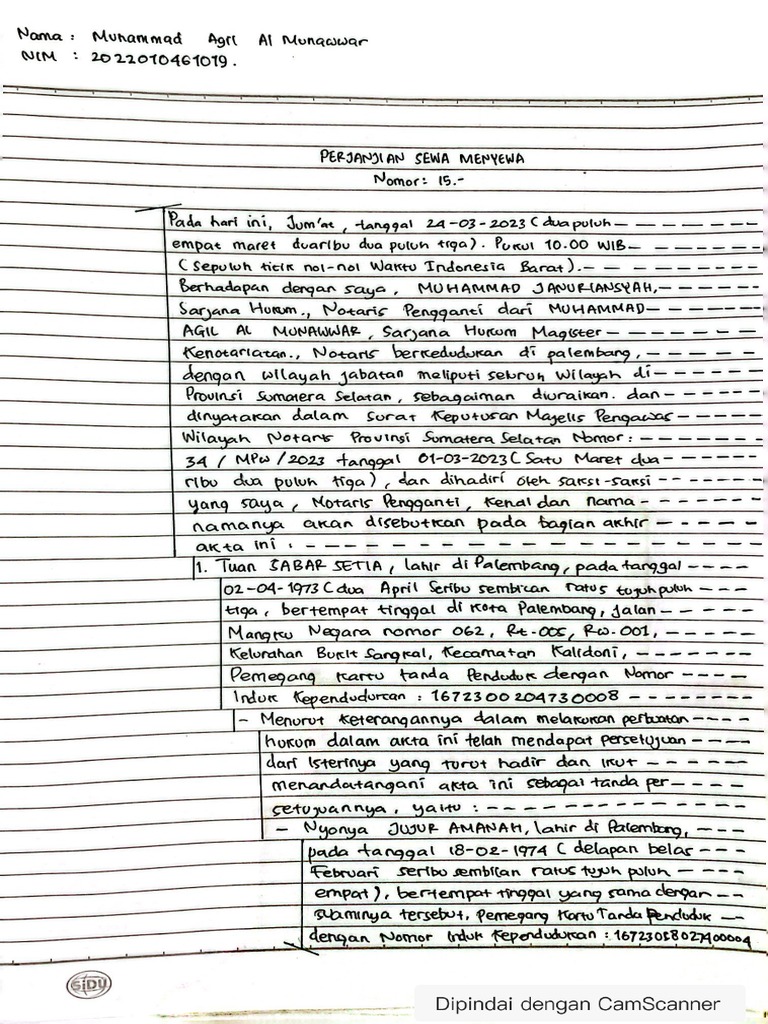 Nama : Muhammad Agil Al Munawwar
NIM : 2022010461019.
PERJANJIAN SEWA MENYEWA
Nomor: 15.-
Pada hari ini, Jum'at, tanggal 24-03-2023 (dua puluh - - - - - - -
empat maret duaribu dua puluh tiga). Pukul 10.00 WIB - - - - - - -
(Sepuluh titik nol-nol Waktu Indonesia Barat). - - - - - - - - -
Berhadapan dengan saya, MUHAMMAD JANURIANSYAH, - - - - - -
Sarjana Hukum., Notaris Pengganti dari MUHAMMAD - - - - - -
AGIL AL MUNAWWAR, Sarjana Hukum Magister - - - - - - -
Kenotariatan., Notaris berkedudukan di palembang, - - - - - -
dengan wilayah jabatan meliputi seluruh wilayah di - - - - - -
Provinsi Sumatera Selatan, sebagaiman diuraikan. dan - - - - -
dinyatakan dalam Surat Keputusan Majelis Pengawas - - - - -
Wilayah Notaris Provinsi Sumatera Selatan Nomor: - - - - - - -
34 / MPW / 2023 tanggal 01-03-2023 (Satu Maret dua - - - - - -
ribu dua puluh tiga), dan dihadiri oleh saksi-saksi - - - - - -
yang saya, Notaris Pengganti, kenal dan nama - - - - - - -
namanya akan disebutkan pada bagian akhir - - - - - -
akta ini : - - - - - - - - - - - - - - - - - - - - - -
1. Tuan SABAR SETIA, lahir di Palembang, pada tanggal - - - -
02-04-1973 (dua April Seribu sembilan ratus tujuh puluh - - -
tiga, bertempat tinggal di Kota Palembang, jalan - - - - -
Mangku Negara nomor 062, Rt.005, Rw.001, - - - - - -
Kelurahan Bukit Sangkal, Kecamatan Kalidoni, - - - - - - -
Pemegang kartu tanda Penduduk dengan Nomor - - - -
Induk Kependudukan : 1672300204730008 - - - - - - -
- Menurut keterangannya dalam melakukan perbuatan - - - -
hukum dalam akta ini telah mendapat persetujuan - - - -
dari Isterinya yang turut hadir dan ikut - - - - - -
menandatangani akta ini sebagai tanda per - - - -
setujuannya, yaitu : - - - - - - - - - - - - - -
- Nyonya JUJUR AMANAH, lahir di Palembang, - - -
pada tanggal 18-02-1974 (delapan belas - - - -
Februari seribu sembilan ratus tujuh puluh - - - -
empat), bertempat tinggal yang sama dengan - - -
suaminya tersebut, pemegang Kartu Tanda Penduduk - -
dengan Nomor Induk Kependudukan : 1672305802740004
SIDU
Dipindai dengan CamScanner